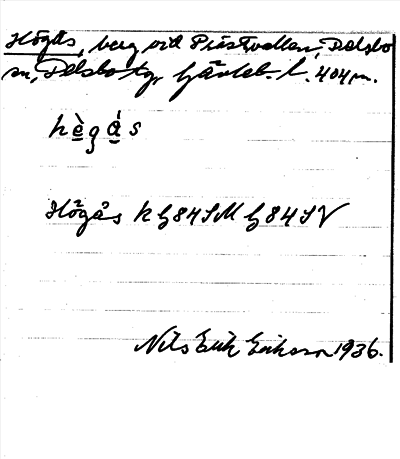 Högås, berg vid Prästvallen, Delsbo
sn, Delsbo tg, Gävleb. l. 404 m.
hègás
Högås k bg 84 SM bg 84 SV
Nils Erik Eriksson 1936.